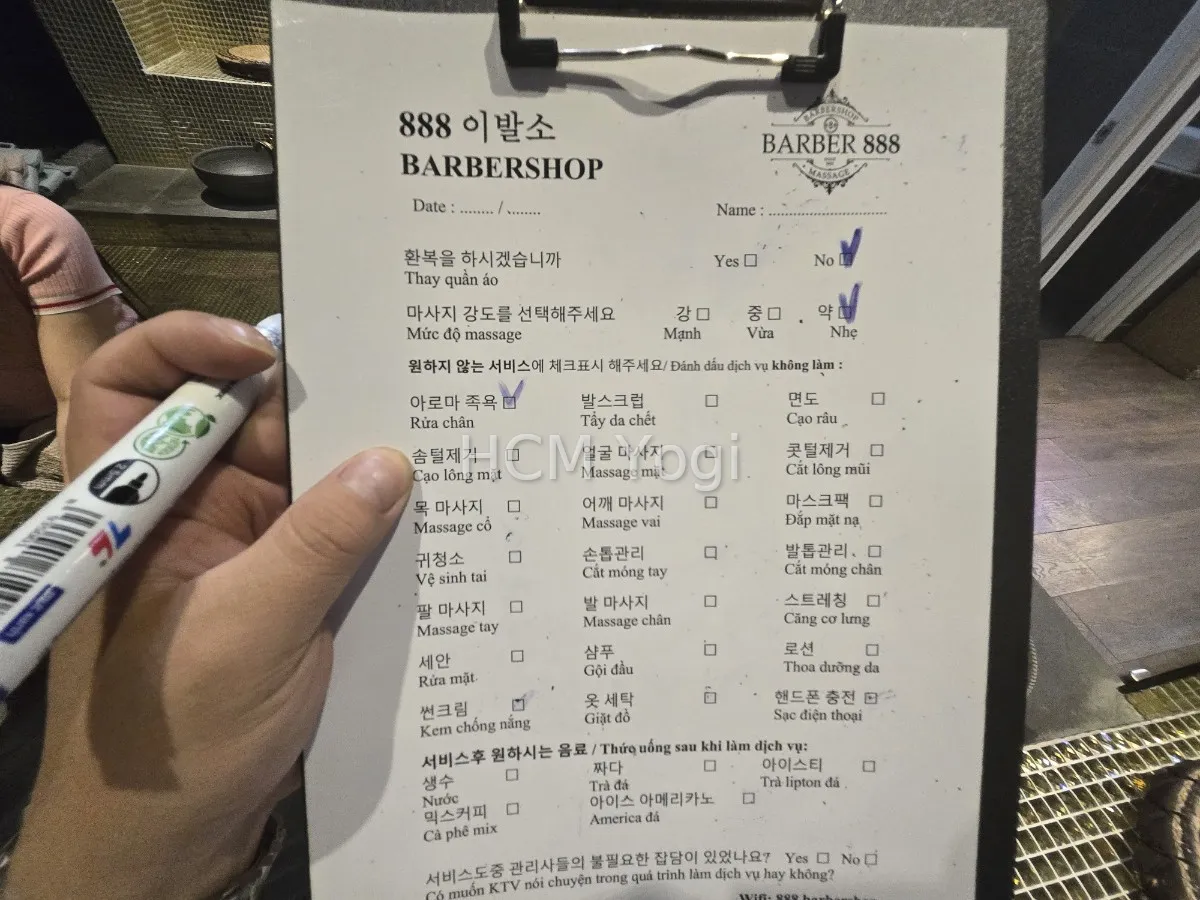 888 이발소
BARBERSHOP
BARBERSHOP
BARBER 888
MASSAGE
Date : ........ / ........
Name : ............................
환복을 하시겠습니까 Yes ☐ No ☑
Thay quần áo
마사지 강도를 선택해주세요 강 ☐ 중 ☐ 약 ☑
Mức độ massage Mạnh Vừa Nhẹ
원하지 않는 서비스에 체크표시 해주세요/ Đánh dấu dịch vụ không làm :
아로마 족욕 ☑ 발스크럽 ☐ 면도 ☐
Rửa chân Tẩy da chết Cạo râu
솜털제거 ☐ 얼굴 마사지 ☐ 콧털제거 ☐
Cạo lông mặt Massage mặt Cắt lông mũi
HCM Yogi
목 마사지 ☐ 어깨 마사지 ☐ 마스크팩 ☐
Massage cổ Massage vai Đắp mặt nạ
귀청소 ☐ 손톱관리 ☐ 발톱관리 ☐
Vệ sinh tai Cắt móng tay Cắt móng chân
팔 마사지 ☐ 발 마사지 ☐ 스트레칭 ☐
Massage tay Massage chân Căng cơ lưng
세안 ☐ 샴푸 ☐ 로션 ☐
Rửa mặt Gội đầu Thoa dưỡng da
썬크림 ☐ 옷 세탁 ☐ 핸드폰 충전 ☐
Kem chống nắng Giặt đồ Sạc điện thoại
서비스후 원하시는 음료 / Thức uống sau khi làm dịch vụ:
생수 ☐ 짜다 ☐ 아이스티 ☐
Nước Trà đá Trà lipton đá
믹스커피 ☐ 아이스 아메리카노 ☐
Cà phê mix America đá
서비스도중 관리사들의 불필요한 잡담이 있었나요? Yes ☐ No ☐
Có muốn KTV nói chuyện trong quá trình làm dịch vụ hay không?
Wifi: 888 barbershop